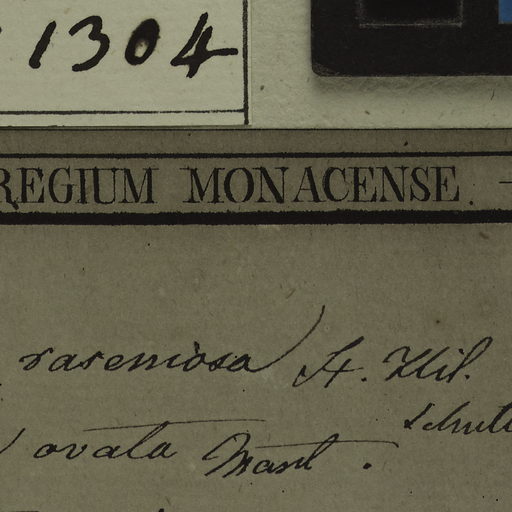 1304
REGIUM MONACENSE.
racemosa St. Hil.
ovata Mart.